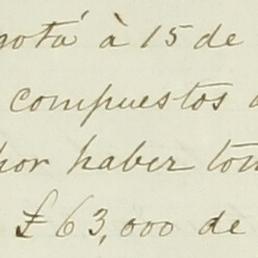 gotá à 15 de
compuestos
por haber tom
£63,000 de